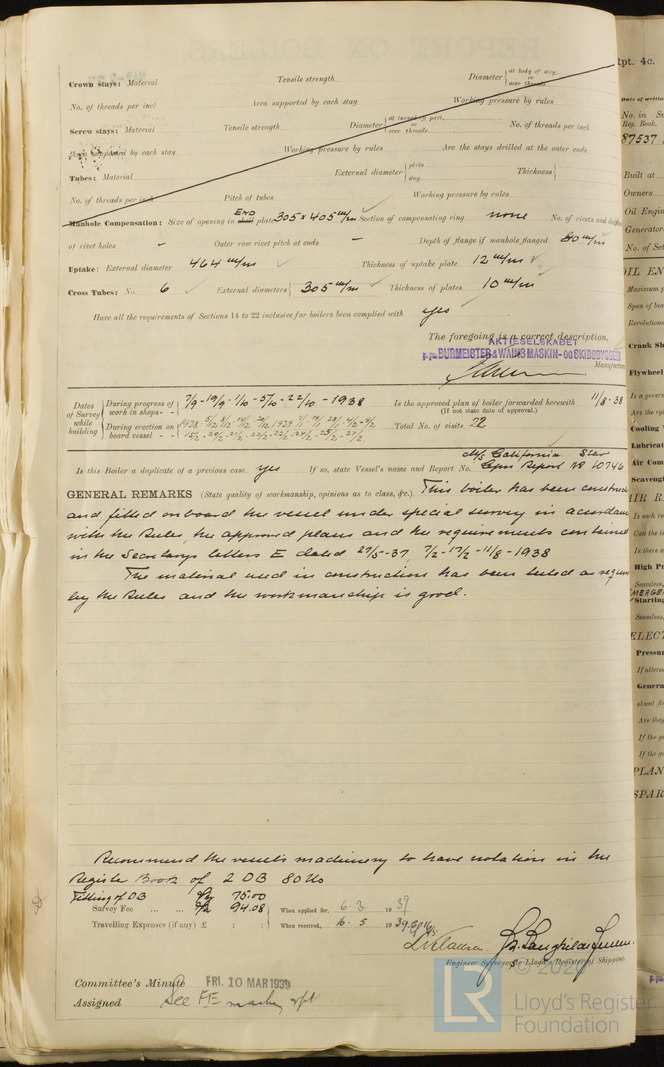 Crown stays: Material Tensile strength Diameter at body of stay, or over threads
No. of threads per inch Area supported by each stay Working pressure by rules
Screw stays: Material Tensile strength Diameter at turned off part, or over threads No. of threads per inch
Area supported by each stay Working pressure by rules Are the stays drilled at the outer ends
Tubes: Material External diameter plain stay Thickness
No. of threads per inch Pitch of tubes Working pressure by rules
Manhole Compensation: Size of opening in END plate 305 x 405 m/m Section of compensating ring none No. of rivets and
of rivet holes - Outer row rivet pitch at ends - Depth of flange if manhole flanged 80 m/m
Uptake: External diameter 464 m/m ✓ Thickness of uptake plate 12 m/m ✓
Cross Tubes: No. 6 ✓ External diameters 305 m/m ✓ Thickness of plates 10 m/m
Have all the requirements of Sections 14 to 22 inclusive for boilers been complied with yes
The foregoing is a correct description,
AKTIESELSKABET
p.p. BURMEISTER & WAINS MASKIN- OG SKIBSBYGGERI
Manufacturer
Dates of Survey while building
During progress of work in shops - - 7/9 - 19/9 - 1/10 - 5/10 - 22/10 - 1938
Is the approved plan of boiler forwarded herewith 11/8-38
(If not state date of approval.)
During erection on board vessel - - 1938
Total No. of visits 22
M/S California Star
Is this Boiler a duplicate of a previous case. yes If so, state Vessel's name and Report No. Cpn Report No 10746
GENERAL REMARKS (State quality of workmanship, opinions as to class, &c.) This boiler has been
and fitted onboard the vessel under special survey in
with the Rules, the approved plans and the requirements contained
in the Secretarys letters E dated 27/5-37, 7/2-17/2-11/8-1938
The material used in construction has been tested as
by the Rules and the workmanship is good.
Recommend the vessel's machinery to have notation in the
Register Book of 2 DB 80 lbs
Fitting of DB 75.00
Survey Fee ... ... 94.08 When applied for, 6.3 1939
Travelling Expenses (if any) £ : : When received, 16.5 1939
Engineer Surveyor to Lloyd's Register of Shipping.
Committee's Minute FRI. 10 MAR 1939
Assigned See F.E. machy rpt
© 2020
LR
Lloyd's Register
Foundation
Rpt. 4c.
Date of writing
No. in
Reg. Book.
87537
Built at
Owners
Oil Engin
Generator
No. of Se
OIL EN
Maximum p
Span of bea
Revolutions
Crank Sh
Flywheel
Is a govern
Are the cyl
Cooling
Lubricat
Air Com
Scavengi
AIR R
Is each re
Can the i
Is there a
High Pr
Seamless,
EMERGE
Starting
Seamless,
ELECT
Pressur
If altern
Genera
shunt fi
Are they
If the ge
If the ge
PLAN
SPAR